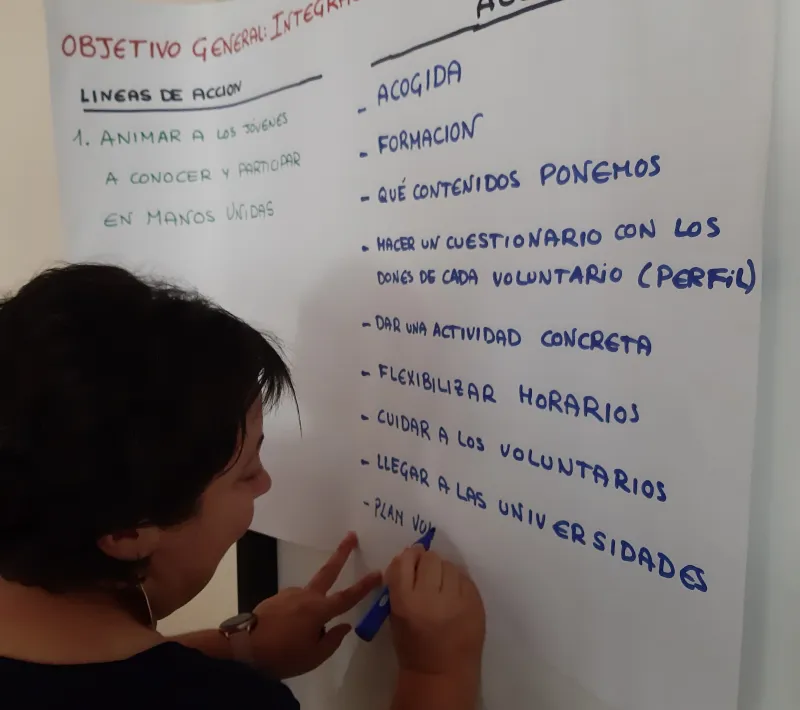 OBJETIVO GENERAL:
LINEAS DE ACCION
1. ANIMAR A LOS JÓVENES
A CONOCER Y PARTICIPAR
EN MANOS UNIDAS
- ACOGIDA
- FORMACION
- QUÉ CONTENIDOS PONEMOS
- HACER UN CUESTIONARIO CON LOS
DONES DE CADA VOLUNTARIO (PERFIL)
- DAR UNA ACTIVIDAD CONCRETA
- FLEXIBILIZAR HORARIOS
- CUIDAR A LOS VOLUNTARIOS
- LLEGAR A LAS UNIVERSIDADES
- PLAN